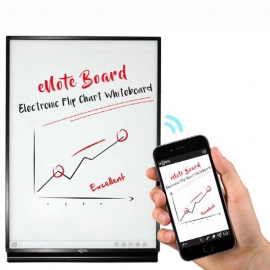 eNote Board
Electronic Flip Chart Whiteboard
Excellent
eNote Board
Electronic Flip Chart Whiteboard
Excellent